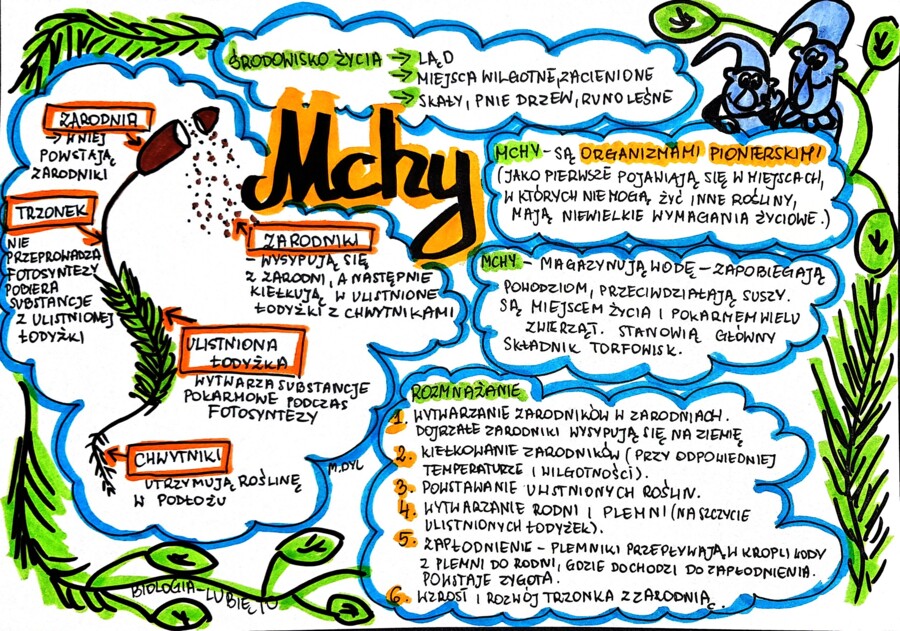 ŚRODOWISKO ŻYCIA → LĄD
→ MIEJSCA WILGOTNE, ZACIENIONE
→ SKAŁY, PNIE DRZEW, RUNO LEŚNE
Mchy
ZARODNIA
→ W NIEJ
POWSTAJĄ
ZARODNIKI
TRZONEK
NIE
PRZEPROWADZA
FOTOSYNTEZY
POBIERA
SUBSTANCJE
Z ULISTNIONEJ
ŁODYŻKI
ZARODNIKI
- WYSYPUJĄ SIĘ
Z ZARODNI, A NASTĘPNIE
KIEŁKUJĄ W ULISTNIONE
ŁODYŻKI Z CHWYTNIKAMI
ULISTNIONA
ŁODYŻKA
WYTWARZA SUBSTANCJE
POKARMOWE PODCZAS
FOTOSYNTEZY
CHWYTNIKI
UTRZYMUJĄ ROŚLINĘ
W PODŁOŻU
M.DYL
MCHY - SĄ ORGANIZMAMI PIONIERSKIMI
(JAKO PIERWSZE POJAWIAJĄ SIĘ W MIEJSCACH,
W KTÓRYCH NIE MOGĄ ŻYĆ INNE ROŚLINY,
MAJĄ NIEWIELKIE WYMAGANIA ŻYCIOWE.)
MCHY - MAGAZYNUJĄ WODĘ - ZAPOBIEGAJĄ
POWODZIOM, PRZECIWDZIAŁAJĄ SUSZY.
SĄ MIEJSCEM ŻYCIA I POKARMEM WIELU
ZWIERZĄT. STANOWIĄ GŁÓWNY
SKŁADNIK TORFOWISK.
ROZMNAŻANIE
1. WYTWARZANIE ZARODNIKÓW W ZARODNIACH.
DOJRZAŁE ZARODNIKI WYSYPUJĄ SIĘ NA ZIEMIĘ
2. KIEŁKOWANIE ZARODNIKÓW (PRZY ODPOWIEDNIEJ
TEMPERATURZE I WILGOTNOŚCI).
3. POWSTAWANIE ULISTNIONYCH ROŚLIN.
4. WYTWARZANIE RODNI I PLEMNI (NA SZCZYCIE
ULISTNIONYCH ŁODYŻEK).
5. ZAPŁODNIENIE - PLEMNIKI PRZEPŁYWAJĄ W KROPLI WODY
Z PLEMNI DO RODNI, GDZIE DOCHODZI DO ZAPŁODNIENIA.
POWSTAJE ZYGOTA.
6. WZROST I ROZWÓJ TRZONKA Z ZARODNIĄ.
BIOLOGIA-LUBIĘ TO